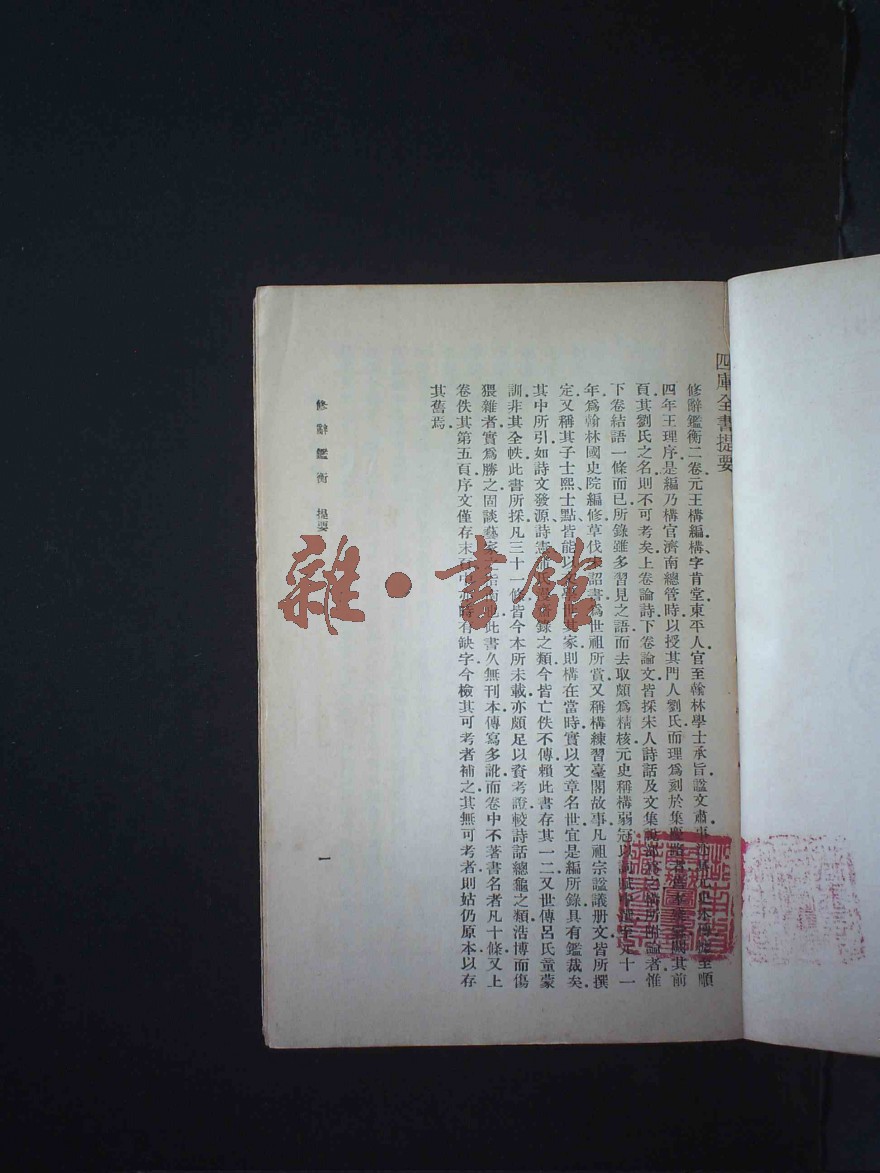 四庫全書提要
修辭鑑衡二卷元王構編構字肯堂東平人官至翰林學士承旨諡文肅事至順
四年王理序是編乃構官濟南總管時以授其門人劉氏而理爲刻於集慶路者舊本闕其前
頁其劉氏之名則不可考矣上卷論詩下卷論文皆採宋人詩話及文集說部爲之構所附論者惟
下卷結語一條而已所錄雖多習見之語而去取頗爲精核元史稱構弱冠以詞賦中選至元十一
年爲翰林國史院編修草伐宋詔書爲世祖所賞又稱構練習臺閣故事凡祖宗諡議册文皆所撰
定又稱其子士熙士點皆能以文學世其家則構在當時實以文章名世宜是編所錄具有鑑裁矣
其中所引如詩文發源詩憲蒲氏錄之類今皆亡佚不傳賴此書存其一二又世傳呂氏童蒙
訓非其全帙此書所採凡三十一條皆今本所未載亦頗足以資考證較詩話總龜之類浩博而傷
猥雜者實爲勝之固談藝家之指南也此書久無刊本傳寫多訛而卷中不著書名者凡十條又上
卷佚其第五頁序文僅存末頁中亦時有缺字今檢其可考者補之其無可考者則姑仍原本以存
其舊焉
修辭鑑衡 提要
一
雜·書館